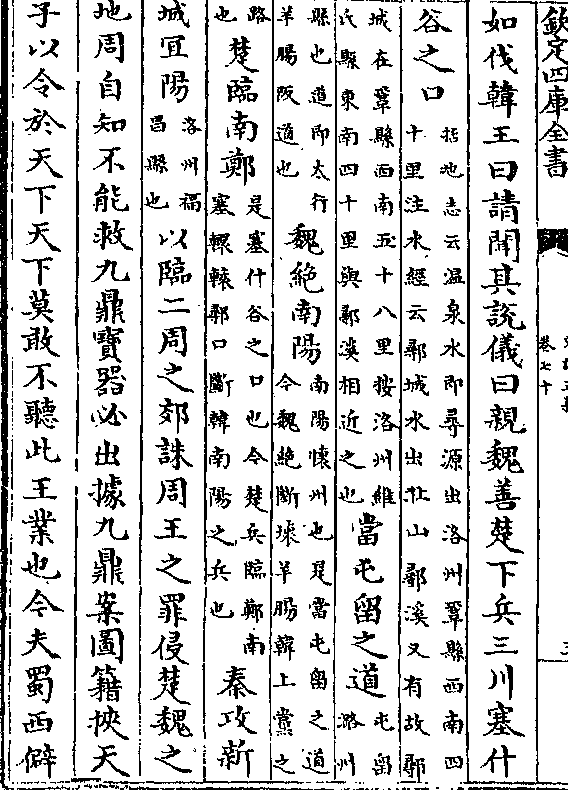 欽定四庫全書
卷七十
如伐韓王曰請聞其說儀曰親魏善楚下兵三川塞什
谷之口
括地志云温泉水即尋源出洛州鞏縣西南四
十里注水經云鄩城水出北山鄩溪又有故鄩
城在鞏縣西南五十八里按洛州緱
氏縣東南四十里與鄩溪相近之也
當屯留之道
屯留
潞州
縣也道即太行
羊腸阪道也
魏絶南陽
南陽懷州也是當屯留之道
令魏絶斷壞羊腸韓上黨之
路
也
楚臨南鄭
是塞什谷之口也令楚兵臨鄭南
塞轘轅鄩口斷韓南陽之兵也
秦攻新
城宜陽
洛州福
昌縣也
以臨二周之郊誅周王之罪侵楚魏之
地周自知不能救九鼎寶器必出據九鼎案圖籍挾天
子以令於天下天下莫敢不聽此王業也今夫蜀西僻